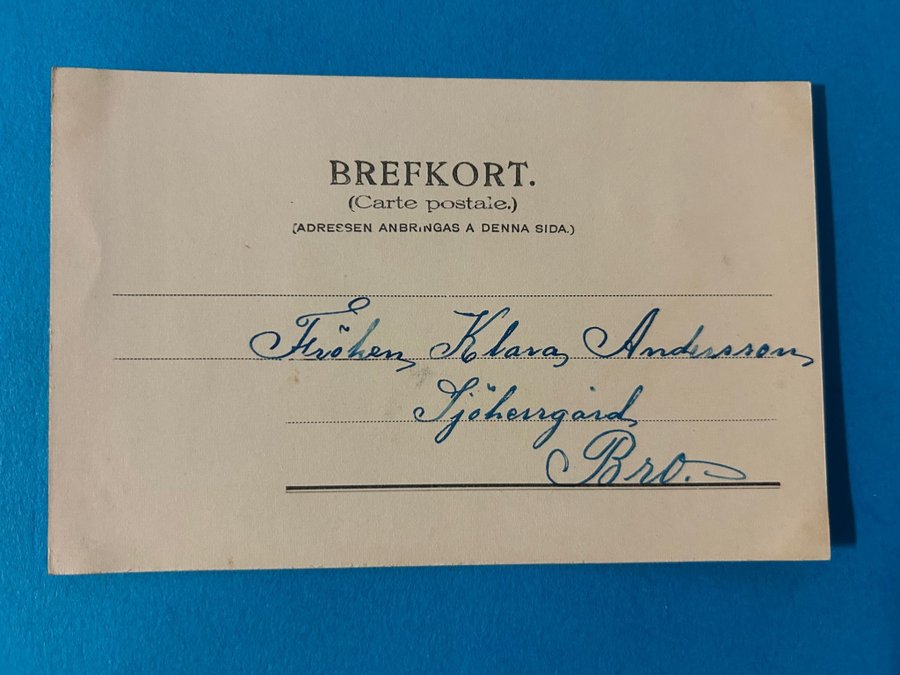 BREFKORT.
(Carte postale.)
(ADRESSEN ANBRINGAS Å DENNA SIDA.)
Fröken Klara Andersson
Sjöherrgård
Bro.